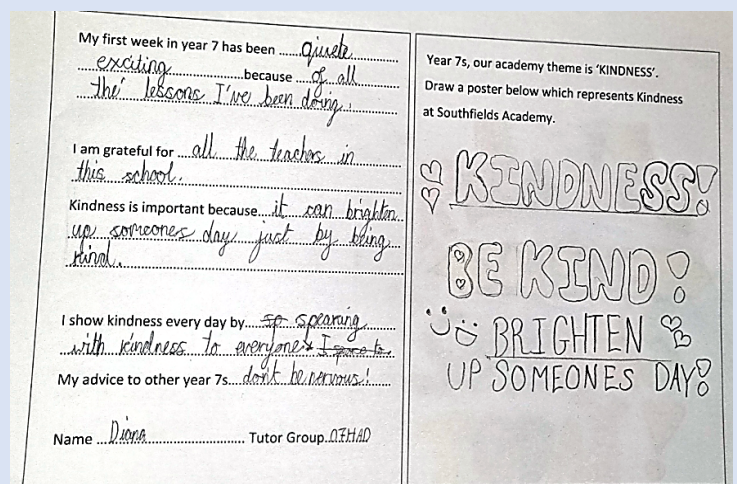 My first week in year 7 has been ...... quiete ............
.... exciting ................because .... of all ..........
the lessons I've been doing.
I am grateful for ... all the teachers in
this school.
Kindness is important because... it can brighten
up someones day just by being
kind.
I show kindness every day by.... so spearing
with kindness to everyone
My advice to other year 7s... dont be nervous!
Name ... Diana ........................ Tutor Group.
Year 7s, our academy theme is 'KINDNESS'.
Draw a poster below which represents Kindness
at Southfields Academy.
KINDNESS!
BE KIND!
BRIGHTEN
UP SOMEONES DAY!